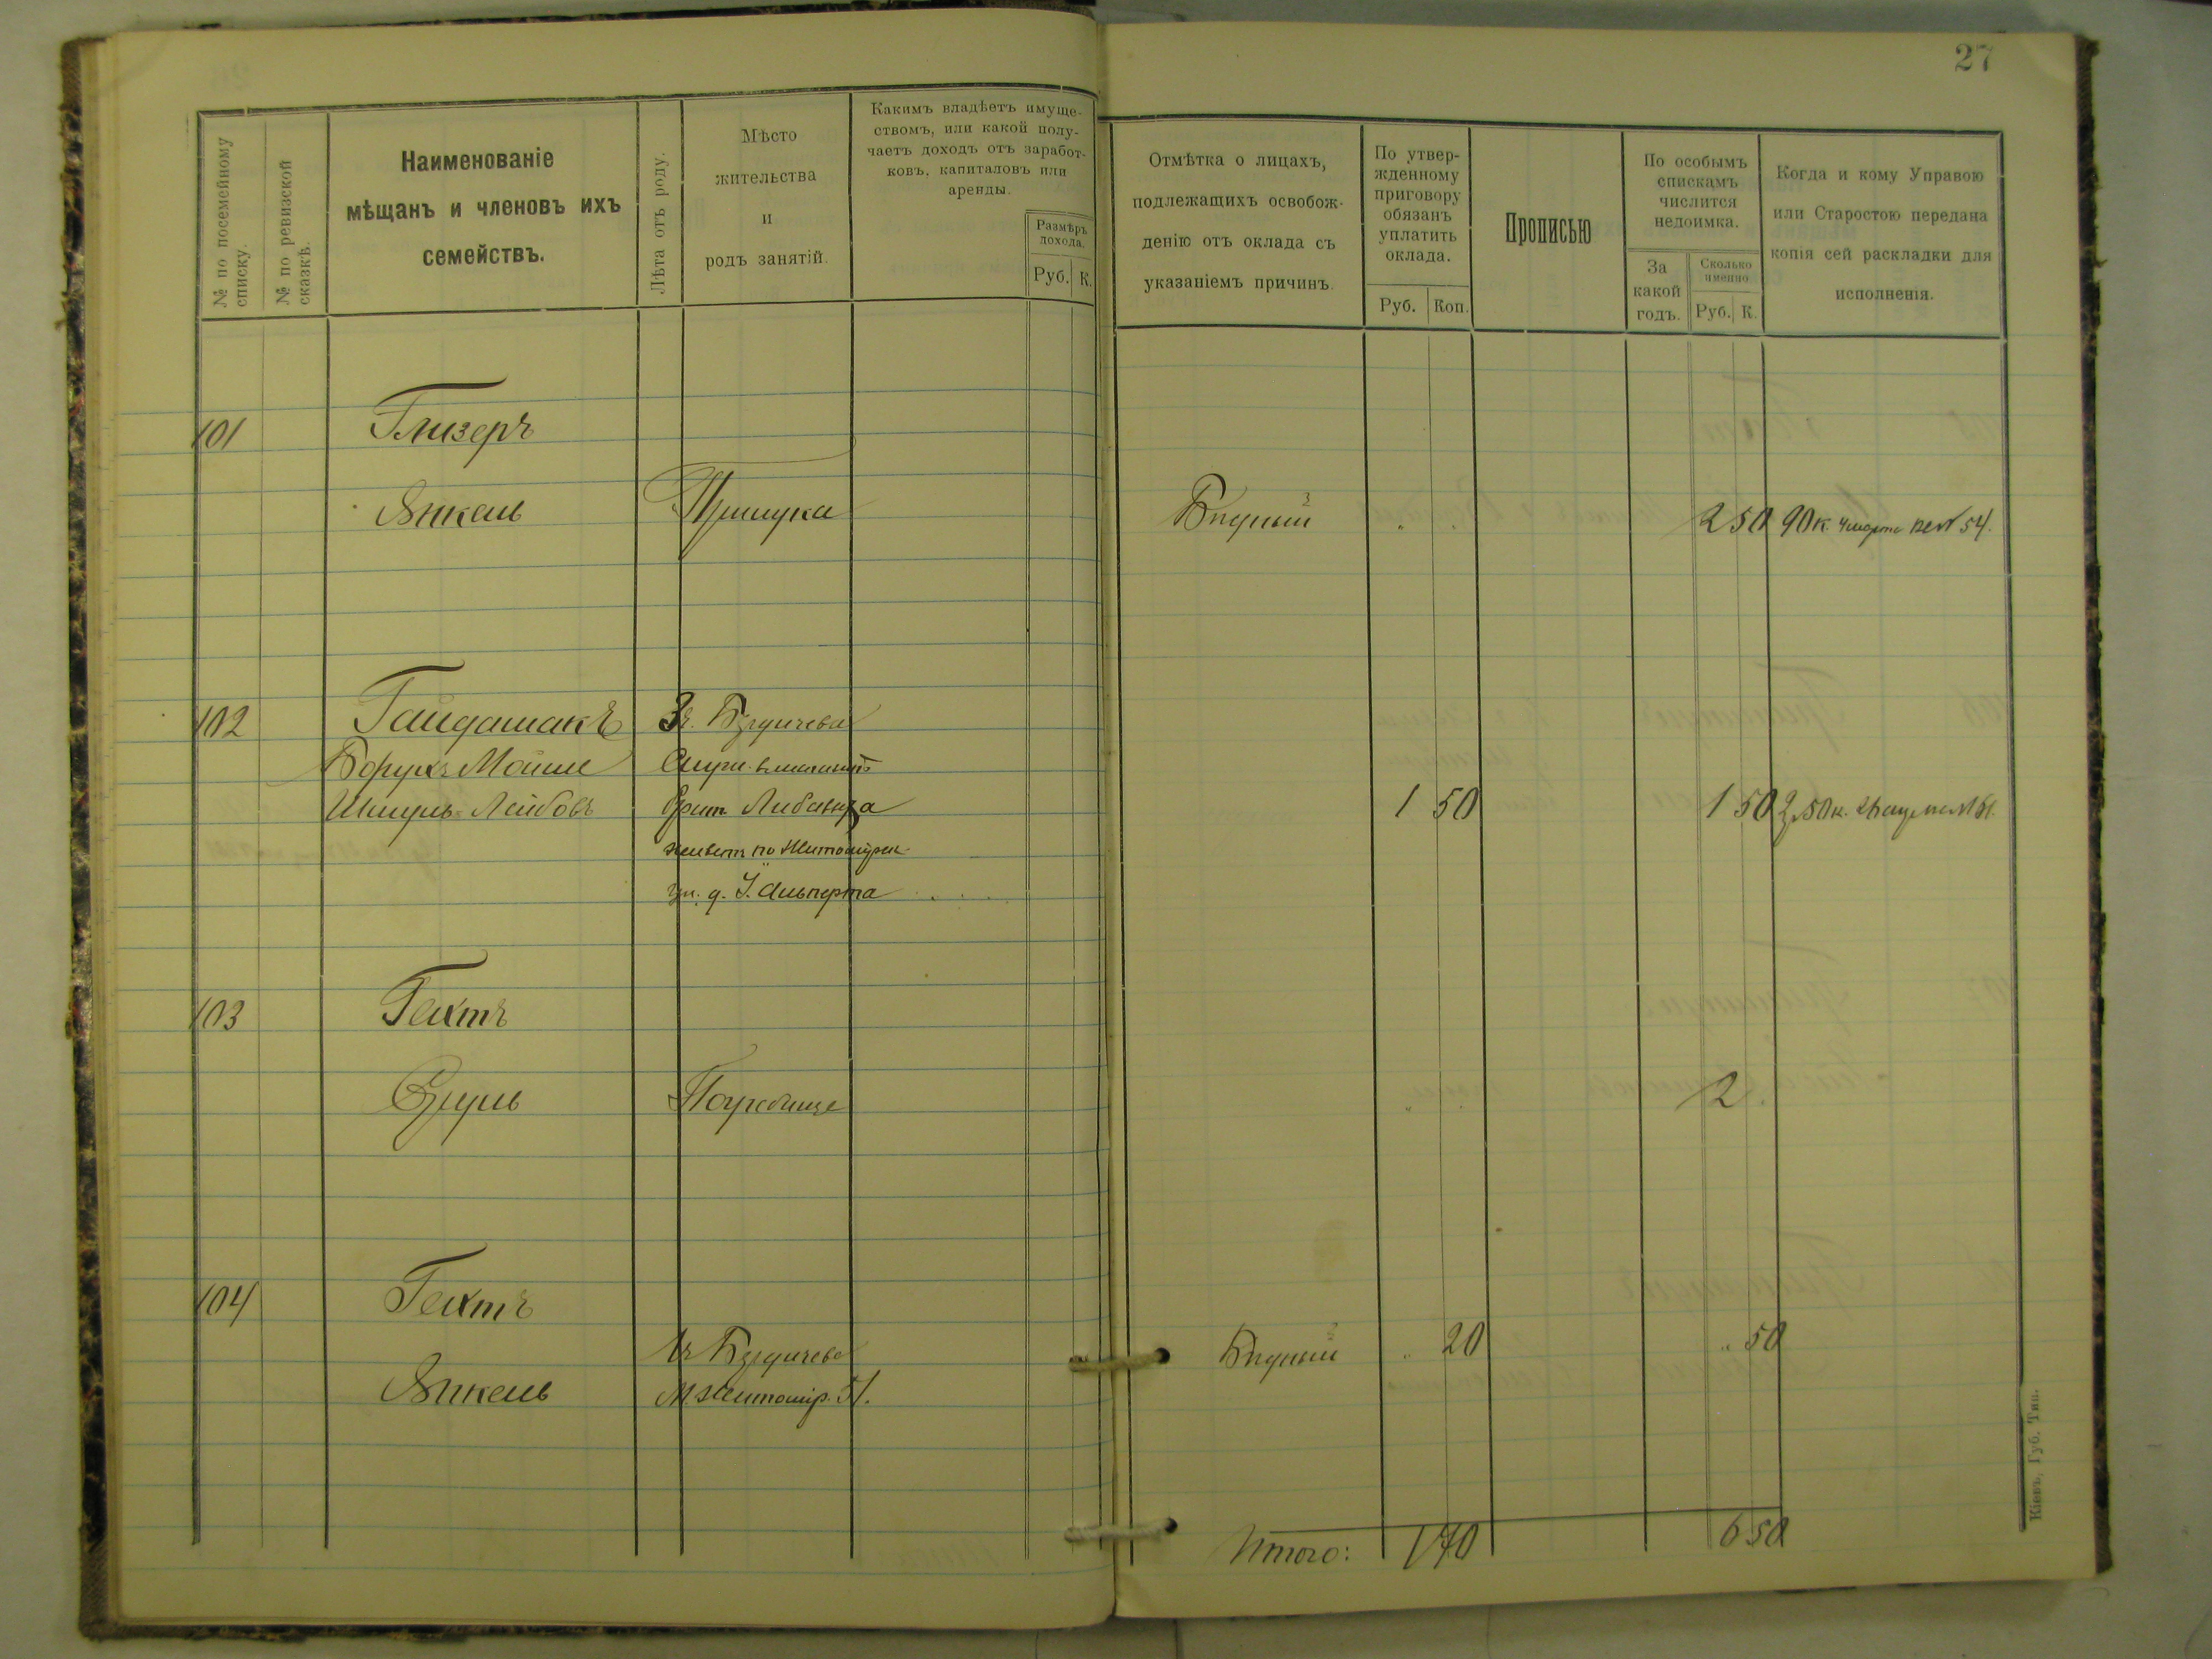 27
№ по посемейному списку.
№ по ревизской сказкѣ.
Наименованіе
мѣщанъ и членовъ ихъ
семействъ.
Лѣта отъ роду.
Мѣсто
жительства
и
родъ занятій.
Какимъ владѣетъ имуще-
ствомъ, или какой полу-
чаетъ доходъ отъ заработ-
ковъ, капиталовъ или
аренды.
Размѣръ
дохода.
Руб. К.
Отмѣтка о лицахъ,
подлежащихъ освобож-
денію отъ оклада съ
указаніемъ причинъ.
По утвер-
жденному
приговору
обязанъ
уплатить
оклада.
Руб. Коп.
Прописью
По особымъ
спискамъ
числится
недоимка.
За
какой
годъ.
Сколько
именно
Руб. К.
Когда и кому Управою
или Старостою передана
копія сей раскладки для
исполненія.
101 Глизеръ
Янкель Бѣдный " " 2 50 90 к. 4 марта №54.
102 Гайдашакъ Бердичева
Борухъ Мойше
Шмуль-Лейбовъ 1 50 1 50 50 к.
живетъ по Житомірск
ул. д. Альперта
103 Гехтъ
Сруль Погребище " " 2
104 Гехтъ
Бердичева Бѣдный " 20 " 50
Янкель М. Житомір. 51.
Итого: 1 70 6 50
Кіевъ, Губ. Тип.